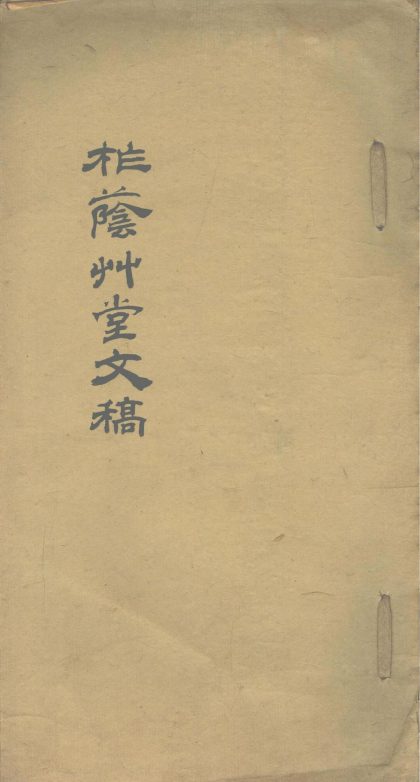 柞蔭艸堂文稿